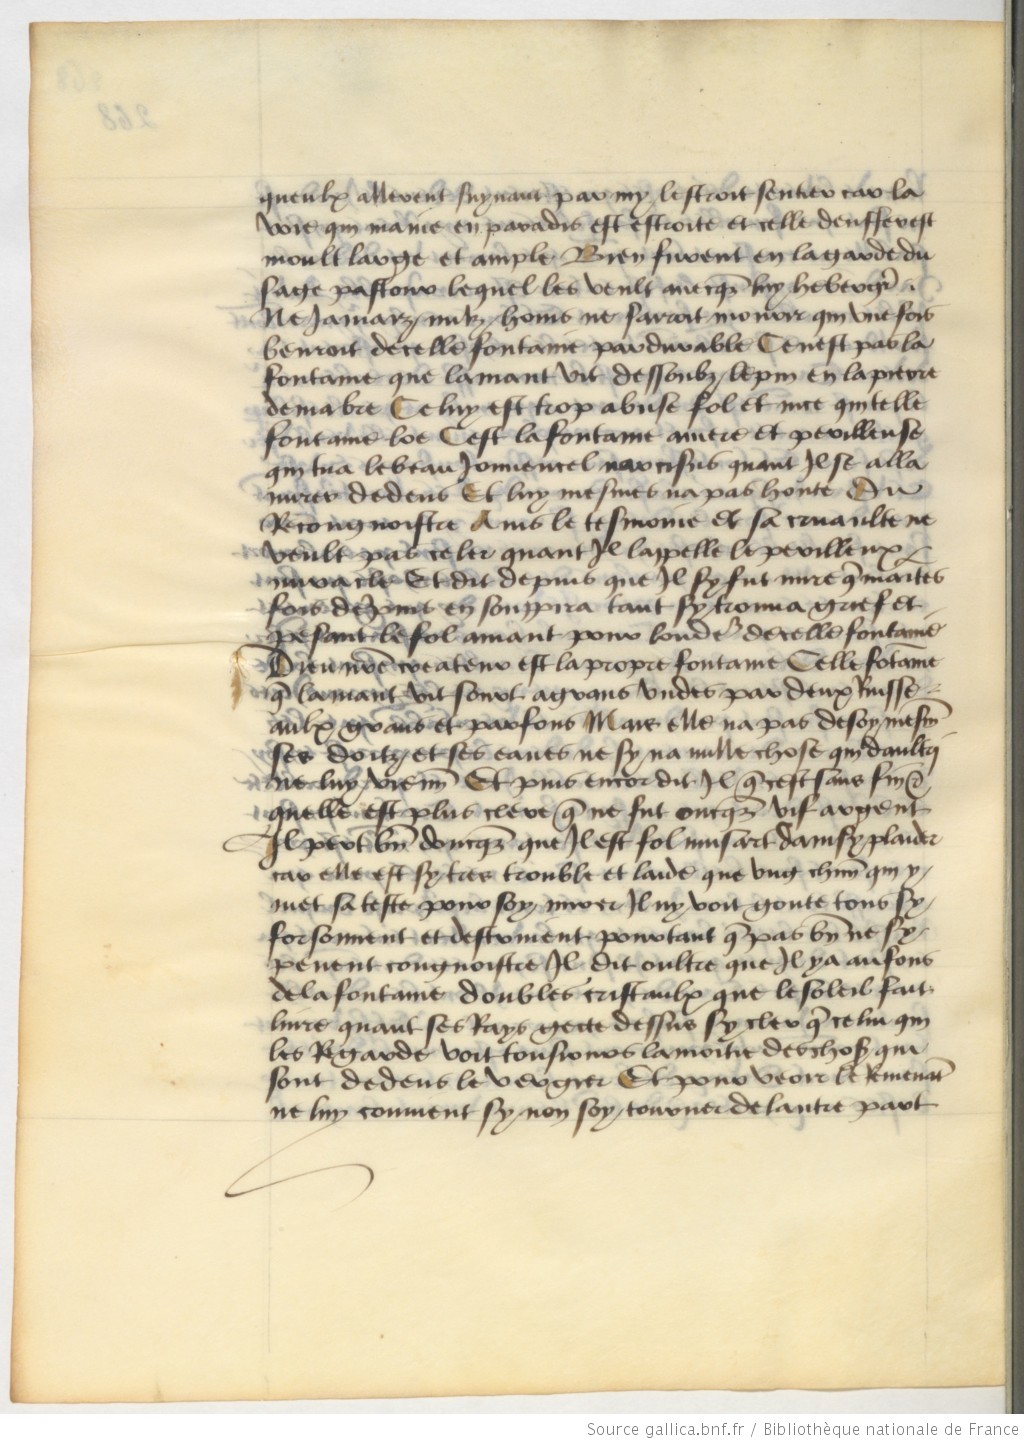 queulx allerent suyuant par my lestroit sentier car la
voie qui maine en paradis est estroite et celle denffer est
moult large et ample Bien furent en la garde du
sage pastour lequel les veult auecq̃s luy heberger
Ne Jamaiz nulz homs ne saroit mourir qui vne fois
beuroit decelle fontaine pardurable Cenest pas la
fontaine que lamant vit dessoubz lepin en la pierre
de mabre Celuy est trop abuse fol et nice qui telle
fontaine loe Cest la fontaine amere et perilleuse
qui tua lebeau Jouuencel narcisus quant Il se alla
mirer dedens Et luy mesmes na pas honte Du
Recongnoistre Ains le tesmoine et sa cruaulte ne
veult pas celer quant Il lappelle le perilleux
miracle Et dit depuis que Il sy fut mire q̃ maites
fois depuis en souppira tant sy trouua grief et
pesant le fol amant pour londe decelle fontaine
Dieu nr̃e createur est la propre fontaine Celle fõtaine
q̃ lamant vit sourt a grans vndes par deux Ruisse
aulx grans et parfons Mais elle na pas de soy mesm̃
ses doitz et ses eaues ne sy na nulle chose qui daultruj
ne luy viem̃ Et puis encor dit Il q̃ cest sans fin &
quelle est plus clere q̃ ne fut oncq̃s vif argent
Il pert bñ doncq̃s que Il est fol musart dainsy plaidier
car elle est sy tres trouble et laide que vng chũn qui y
met sa teste pour soy mirer Il ny voit goute tous sy
forsennent et destruient pourtant q̃ pas bñ ne sy
peuent congnoistre Il dit oultre que Il ya au fons
dela fontaine doubles cristaulx que le soleil fait
luire quant ses Rays gecte dessus sy cler q̃ celui qui
les Regarde voit tousiours la moitie des chos̃ qui
sont dedens le vergier Et pour veoir le Remenãt
ne luy conuient sy non soy tourner de lautre part
268
Source gallica.bnf.fr / Bibliothèque nationale de France